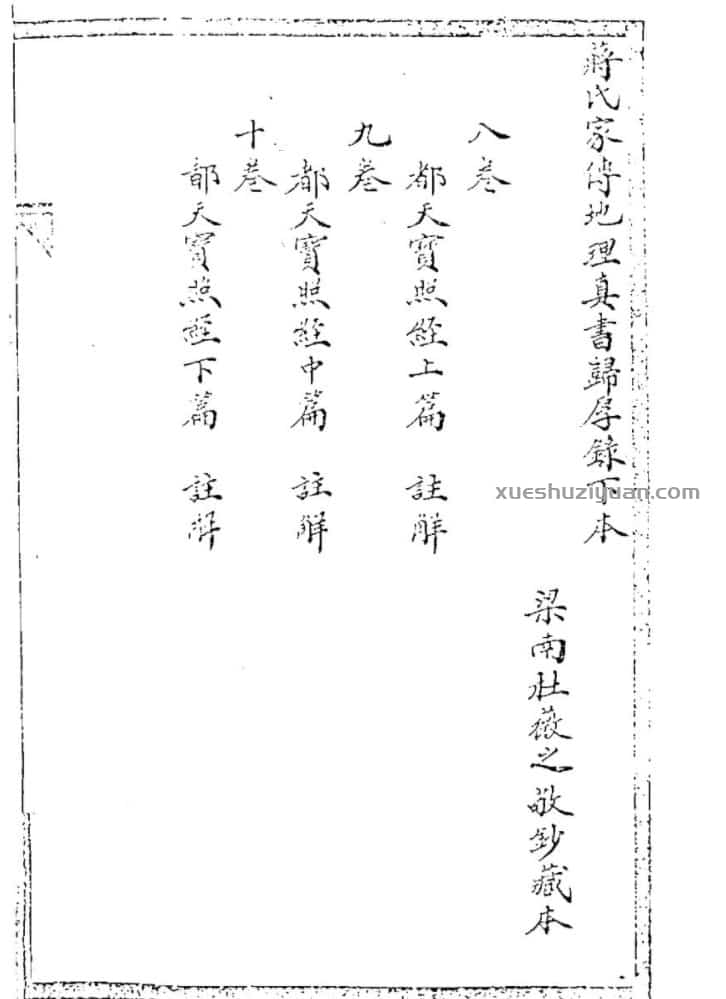 蔣氏家傳地理真書歸厚錄下本
梁南壯薇之敬鈔藏本
八卷
都天寶照經上篇 註解
九卷
都天寶照經中篇 註解
十卷
都天寶照經下篇 註解
xueshuziyuan.com